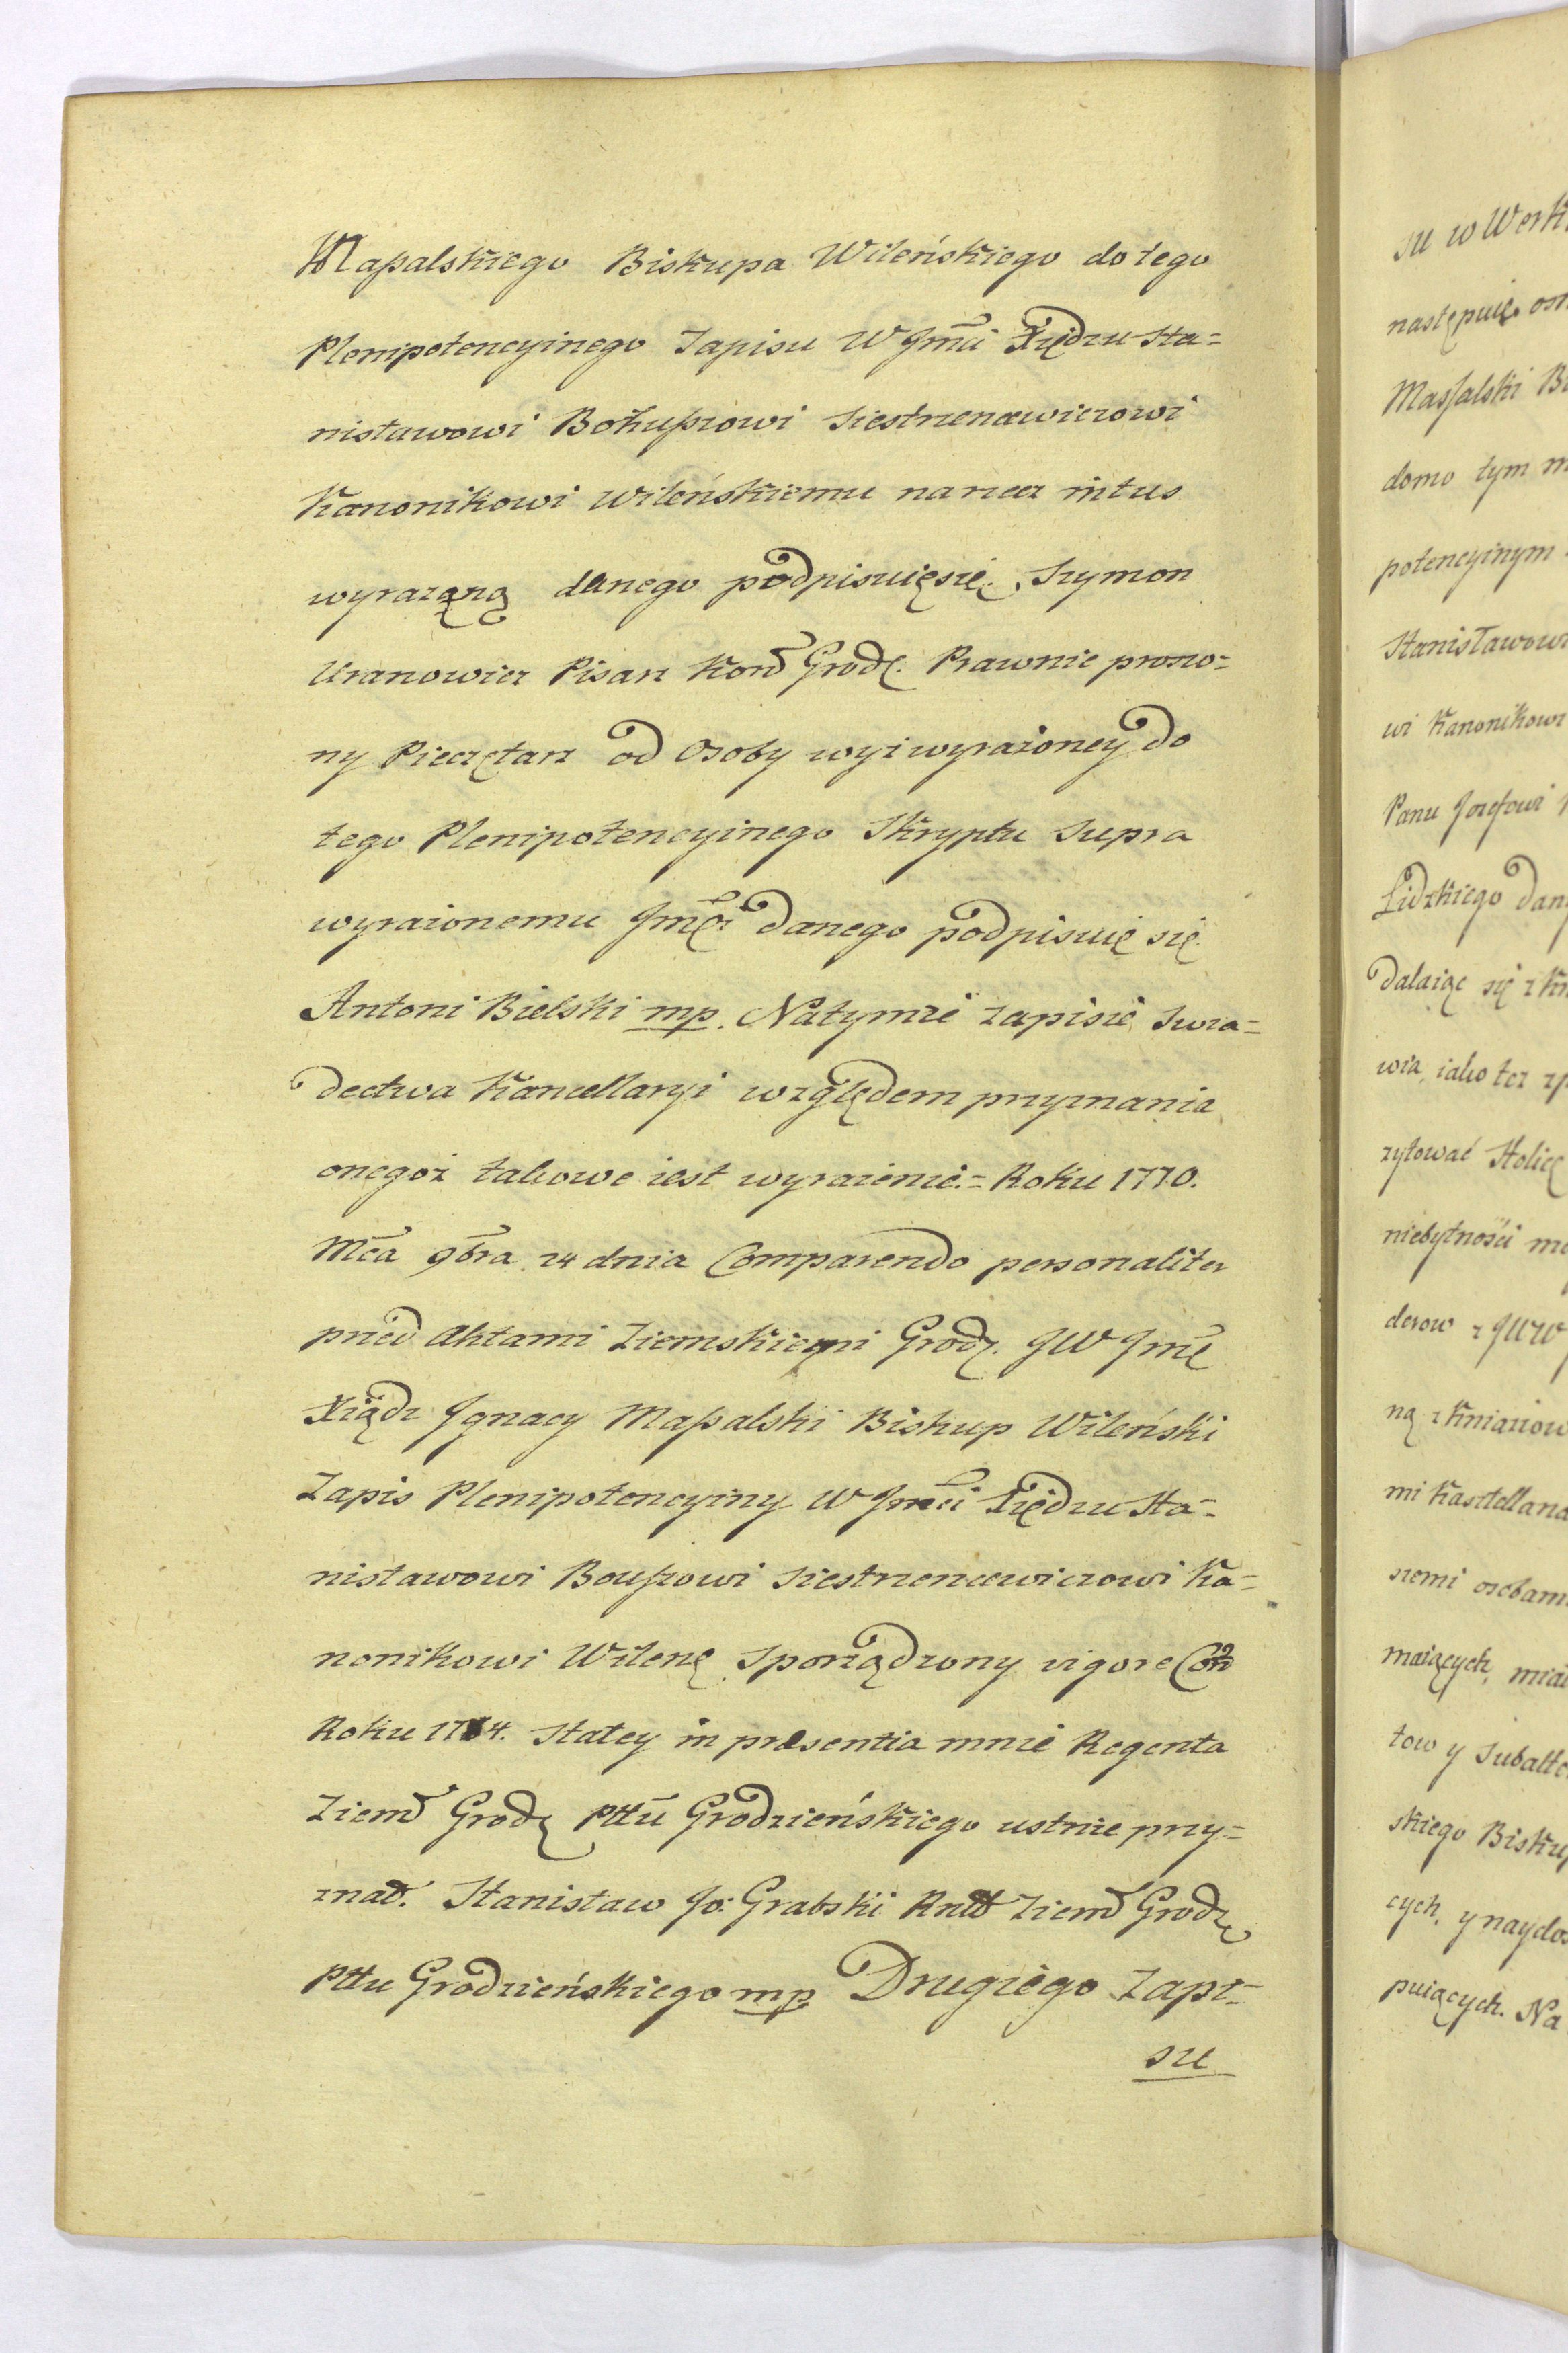 Maßalskiego Biskupa Wileńskiego do tego
Plenipotencyinego Zapisu W Jmći Xiędzu Sta=
nisławowi Bohuszowi Siestrzencewiczowi
Kanonikowi Wileńskiemu na rzecz intus
wyrazaną danego podpisuię się. Szymon
Uranowicz Pisarz Kon̄ Grodẓ. Prawnie proszo=
ny Pieczętarz od Osoby wyż wyrażoney do
tego Plenipotencyinego Skryptu Supra
wyrażonemu Jmći danego podpisuię się
Antoni Bielski mp. Na tymże zapisie Swia=
dectwa Kancellaryi względem przyznania
onegoż takowe iest wyrażenie. = Roku 1770.
Mca 9bra 24 dnia Comparendo personaliter
przed Aktami Ziemskiemi Grodz. JW Jmć
Xiądz Jgnacy Maßalski Biskup Wileński
Zapis Plenipotencyiny W Jmći Xiędzu Sta=
nisławowi Bouszowi Siestrzencewiczowi Ka=
nonikowi Wilenę Sporządzony vigore Con̄
Roku 1764. Stałey in præsentia mnie Regenta
Ziem̄ Grodz Pttu Grodzieńskiego ustnie przy=
znał. Stanisław Jo: Grabski Rntt Ziem̄ Grodz
Pttu Grodzieńskiego mp Drugiego Zapi=
su
su w Werk
następuię. os
Massalski Bi
domo tym m
potencyinym
Stanisławowi
wi Kanonikowi
Panu Jozefowi
Lidzkiego dan
dalaiąc się z Kr
wia, iako tez zp
zytować Stolicę
niebytności mo
derow z JWW
ną z Kniaziow
mi Kasztellana
szemi osobami
maiących, mia
tow y Subalte
skiego Biskup
cych, y naydos
puiących. Na